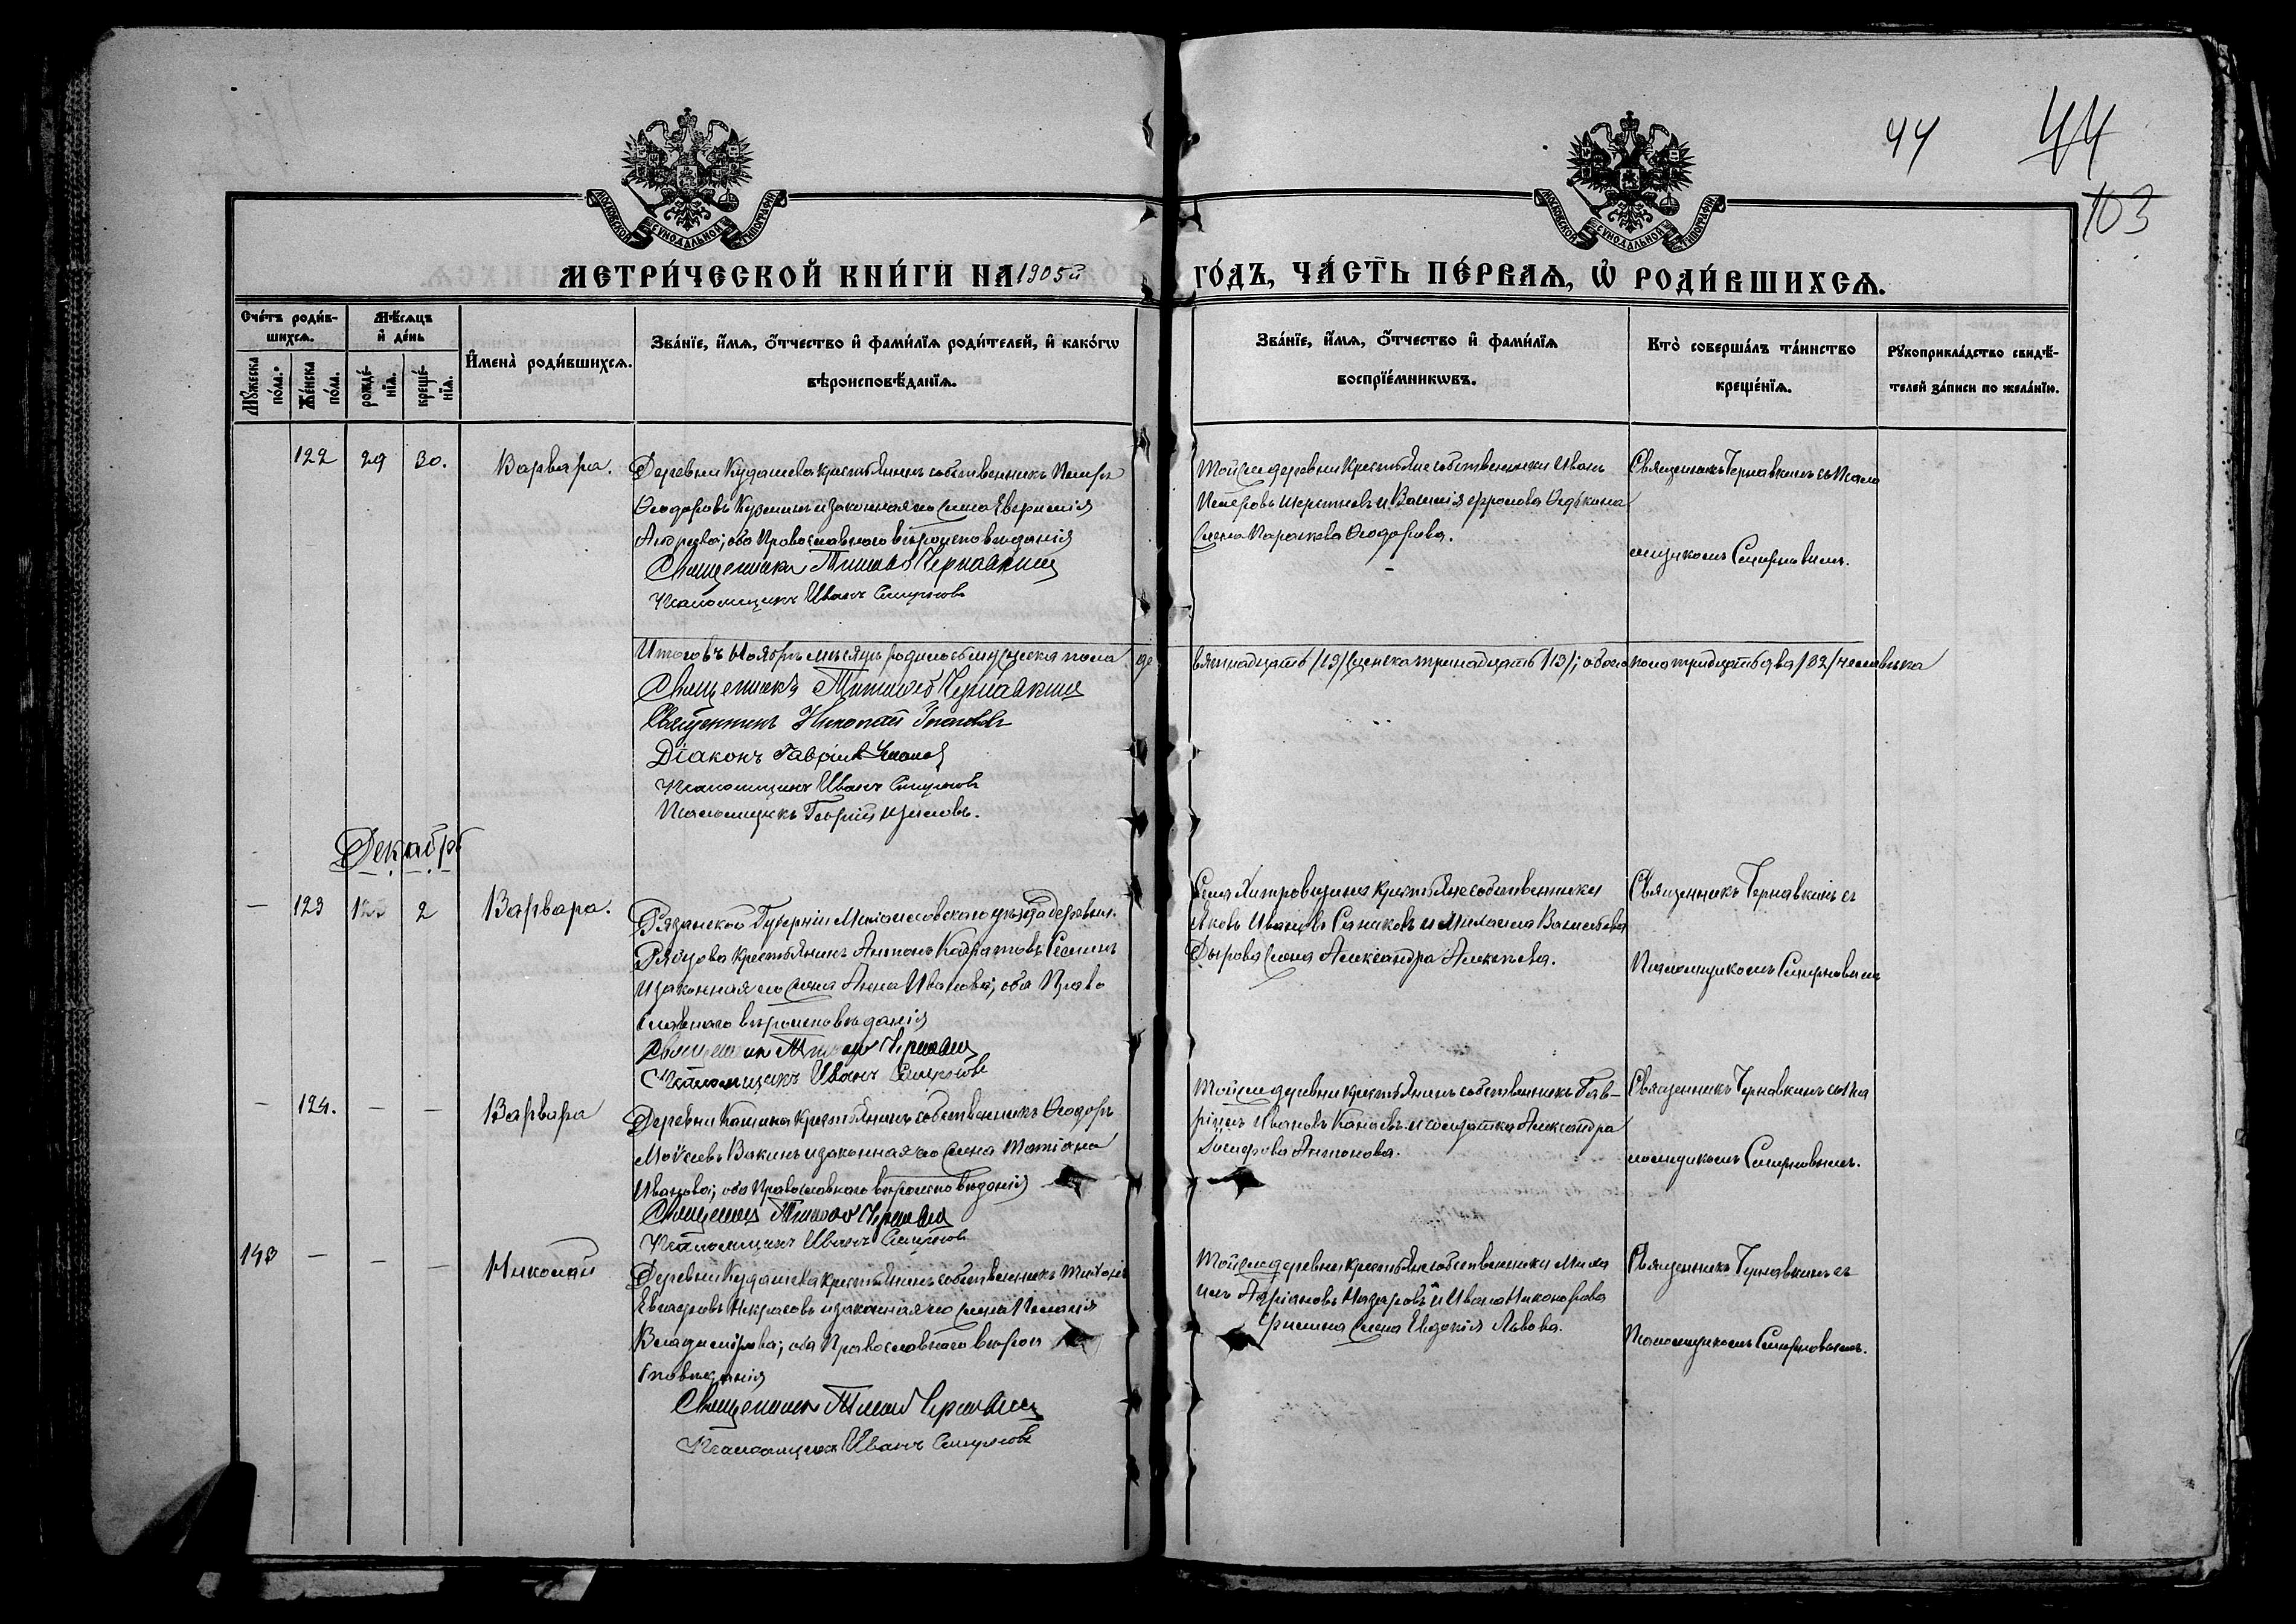 44
44
103
МОСКОВСКОЙ СѴНОДАЛЬНОЙ ТИПОГРАФІИ
МОСКОВСКОЙ СѴНОДАЛЬНОЙ ТИПОГРАФІИ
МЕТРИ́ЧЕСКОЙ КНИ́ГИ НА 1905й ГО́ДЪ, ЧА́СТЬ ПЕ́РВАѦ, Ѡ҆ РОДИ́ВШИХСѦ.
Сче́тъ роди́в-
шихсѧ.
Мꙋ́жеска по́ла.
Же́нска по́ла.
Мѣ́сѧцъ
и҆ де́нь
рожде́-
нїѧ.
креще́-
нїѧ.
И҆мена̀ роди́вшихсѧ.
Зва́нїе, и҆́мѧ, ѻ҆́тчество и҆ фами́лїѧ роди́телей, и҆ како́гѡ
вѣроисповѣ́данїѧ.
Зва́нїе, и҆́мѧ, ѻ҆́тчество и҆ фами́лїѧ
воспрїе́мникѡвъ.
Кто̀ соверша́лъ та́инство
креще́нїѧ.
Рꙋкоприкла́дство свидѣ́-
телей за́писи по жела́нїю.
122 29 30. Варвара.
Деревни Кудашева крестьянинъ собственникъ Петръ
Ѳеодоровъ Кузминъ и законная его жена Евфимія
Андреева; оба Православнаго вѣроисповѣданія
Священникъ Тимоѳей Чернавкинъ
Псаломщикъ Иванъ Смирновъ
Той же деревни крестьяне собственники Иванъ
Петровъ и Василія Фролова Ѳедькина
жена Параскева Ѳеодорова.
Священникъ Чернавкинъ съ Псало
мщикомъ Смирновымъ.
Итого въ Ноябрѣ мѣсяцѣ родилось мужеска пола де
вятнадцать /19/ женска тринадцать /13/; обоего пола тридцать два /32/ человѣка
Священникъ Тимоѳей Чернавкинъ
Священникъ Николай
Діаконъ Гавріилъ
Псаломщикъ Иванъ Смирновъ
Псаломщикъ Георгій
Декабрь
— 123 2 Варвара.
Рязанской Губерніи Михайловскаго уѣзда деревни
крестьянинъ Антонъ Кодратовъ
и законная его жена Анна Иванова; оба Право
славнаго вѣроисповѣданія
Священникъ Тимоѳей Чернавкинъ
Псаломщикъ Иванъ Смирновъ
Села Хитровщина крестьяне собственники
Яковъ Ивановъ Саниковъ и Михаила Васильева
Дырова жена Александра Алексѣева.
Священникъ Чернавкинъ съ
Псаломщикомъ Смирновымъ
— 124. — — Варвара
Деревни Кашина крестьянинъ собственникъ Ѳеодоръ
Моѵсеевъ Вакинъ и законная его жена Татіана
Иванова; оба Православнаго вѣроисповѣданія
Священникъ Тимоѳей Чернавкинъ
Псаломщикъ Иванъ Смирновъ
Той же деревни крестьянинъ собственникъ Гав-
ріилъ Ивановъ Канаевъ и солдатка Александра
Антонова.
Священникъ Чернавкинъ съ Пса
ломщикомъ Смирновымъ.
143 — — — Николай
Деревни Кудашева крестьянинъ собственникъ Тихонъ
Евграфовъ Некрасовъ и законная его жена Пелагія
Владимірова; оба Православнаго вѣрои
сповѣданія
Священникъ Тимоѳей Чернавкинъ
Псаломщикъ Иванъ Смирновъ
Той же деревни крестьяне собственники Миха
илъ Адріановъ Назаровъ и Ивана Никонорова
жена Евдокія Львова.
Священникъ Чернавкинъ съ
Псаломщикомъ Смирновымъ.